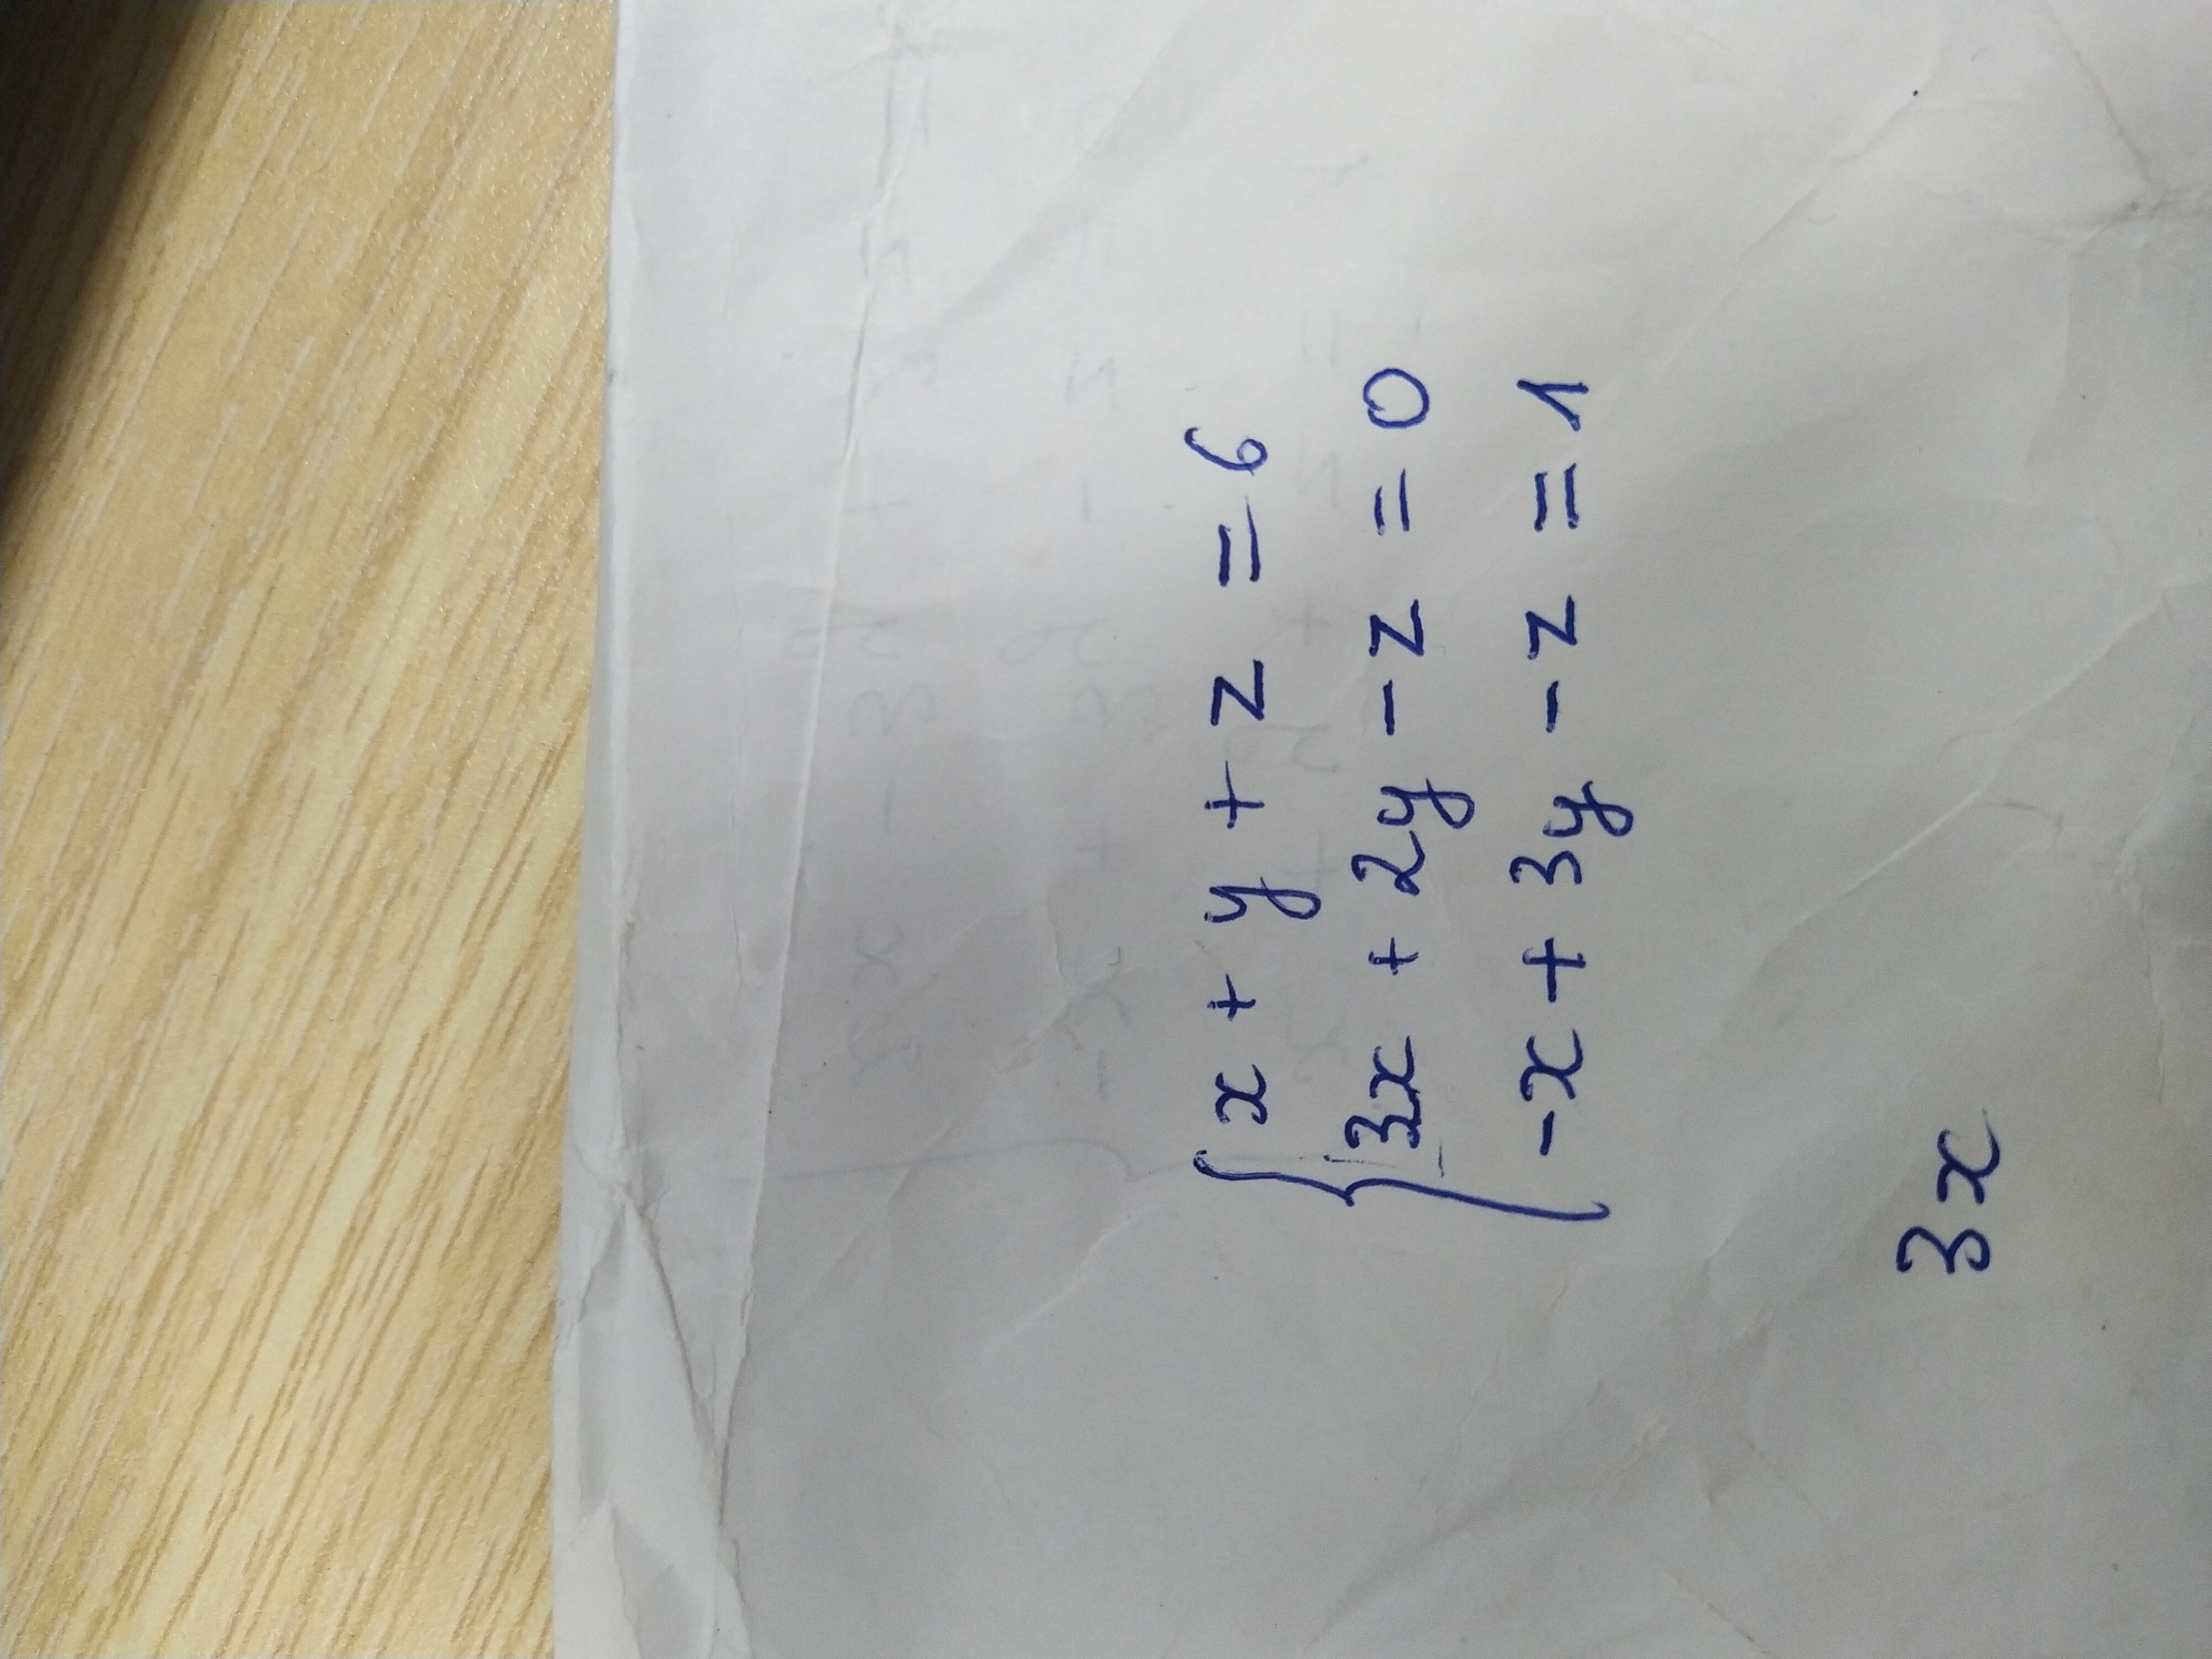 x + y + z = 6
3x + 2y - z = 0
-x + 3y - z = 1
3x